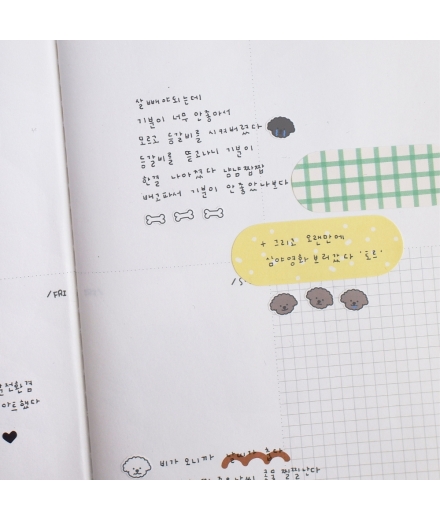 살 빼야되는데
기분이 너무 안좋아서
모르고 등갈비를 시켜버렸다
등갈비를 뜯고나니 기분이
한결 나아졌다 냠냠짭짭
배고파서 기분이 안좋았나보다
+ 그리고 오랜만에
심야영화 보러갔다 '토르'
/FRI
/S
비가 오니까 날씨가 춥다